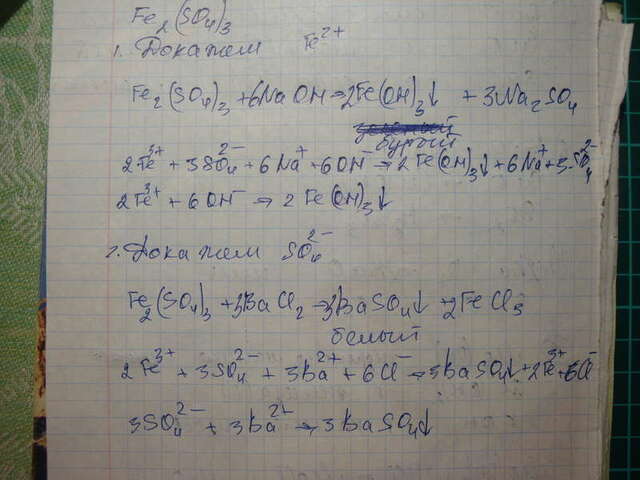 Fe₂(SO₄)₃
1. Докажем Fe²⁺
Fe₂(SO₄)₃ + 6NaOH → 2Fe(OH)₃↓ + 3Na₂SO₄
бурый
2Fe³⁺ + 3SO₄²⁻ + 6Na⁺ + 6OH⁻ → 2Fe(OH)₃↓ + 6Na⁺ + 3SO₄²⁻
2Fe³⁺ + 6OH⁻ → 2Fe(OH)₃↓
2. Докажем SO₄²⁻
Fe₂(SO₄)₃ + 3BaCl₂ → 3BaSO₄↓ + 2FeCl₃
белый
2Fe³⁺ + 3SO₄²⁻ + 3Ba²⁺ + 6Cl⁻ → 3BaSO₄↓ + 2Fe³⁺ + 6Cl⁻
3SO₄²⁻ + 3Ba²⁺ → 3BaSO₄↓